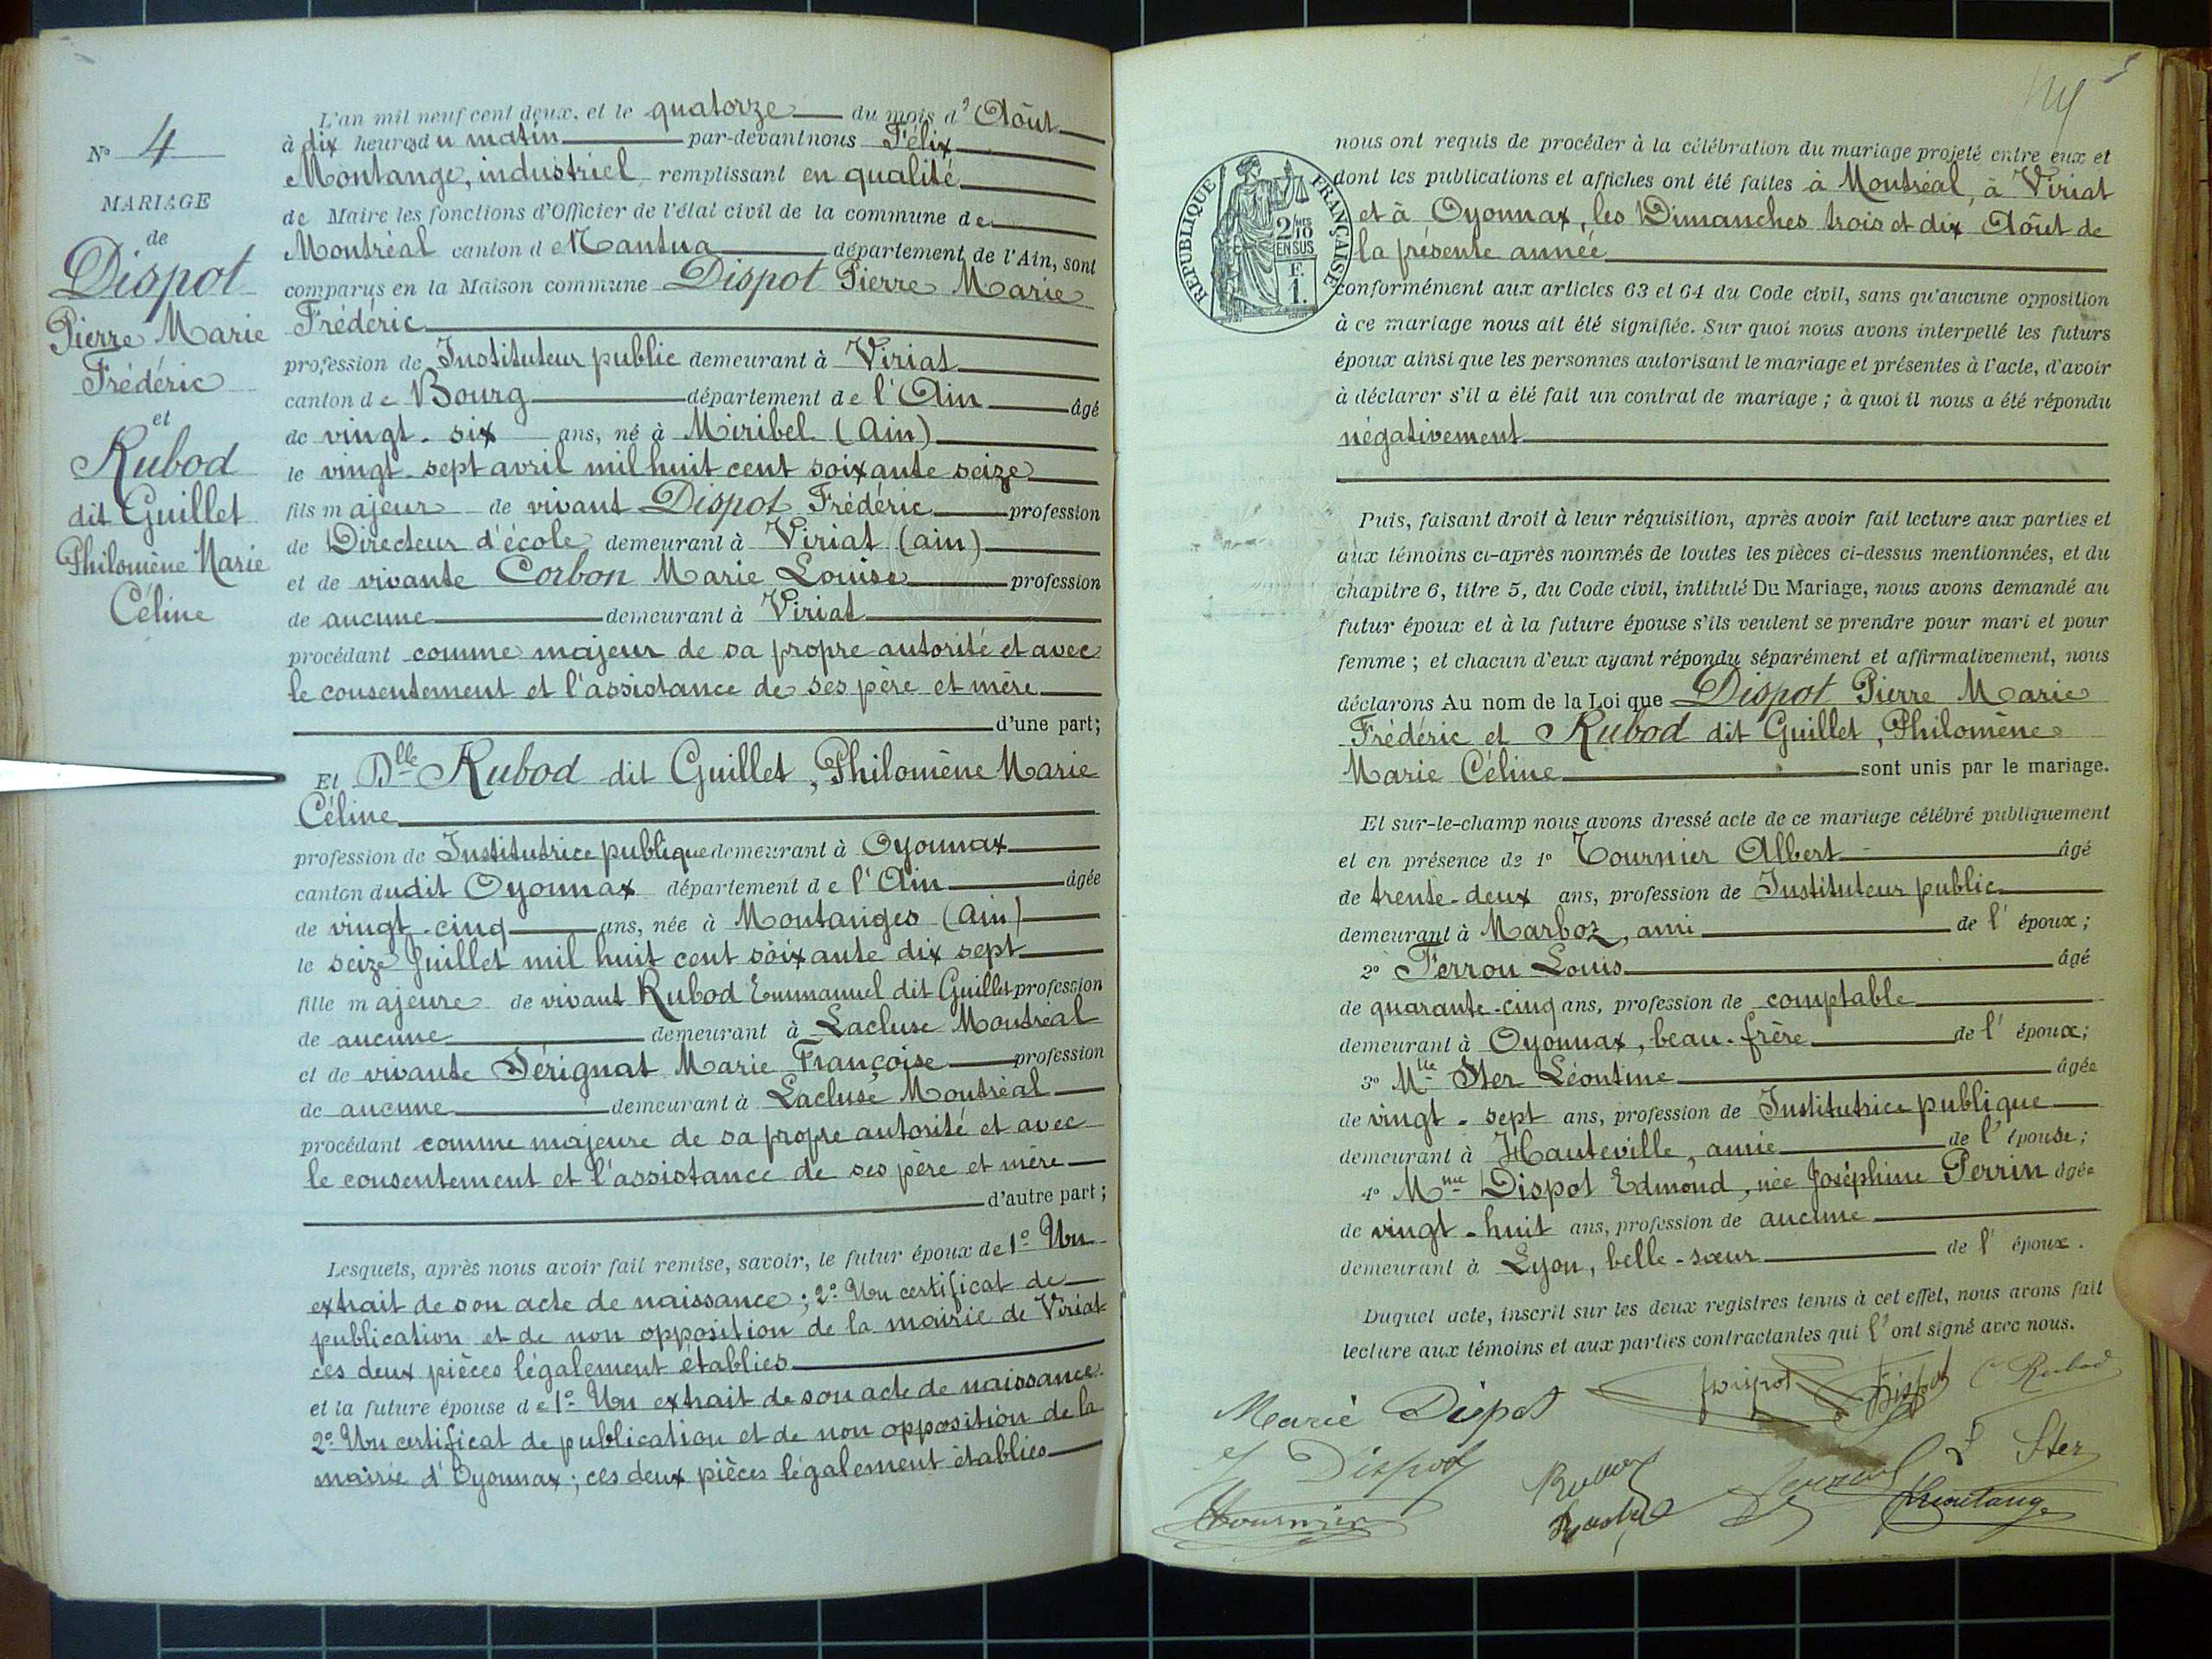 N° 4
MARIAGE
de
Dispot
Pierre Marie
Frédéric
et
Rubod
dit Guillet
Philomène Marie
Céline
L'an mil neuf cent deux, et le quatorze du mois d' Aôut
à dix heures du matin par-devant nous Félix
Montange, industriel remplissant en qualité
de Maire les fonctions d'Officier de l'état civil de la commune de
Montréal canton de Nantua département de l'Ain, sont
comparus en la Maison commune Dispot Pierre Marie
Frédéric
profession de Instituteur public demeurant à Viriat
canton de Bourg département de l'Ain âgé
de vingt-six ans, né à Miribel (Ain)
le vingt-sept avril mil huit cent soixante seize
fils majeur de vivant Dispot Frédéric profession
de Directeur d'école demeurant à Viriat (ain)
et de vivante Corbon Marie Louise profession
de aucune demeurant à Viriat
procédant comme majeur de sa propre autorité et avec
le consentement et l'assistance de ses père et mère
d'une part;
Et Dlle Rubod dit Guillet, Philomène Marie
Céline
profession de Institutrice publique demeurant à Oyonnax
canton dudit Oyonnax département de l'Ain âgée
de vingt-cinq ans, née à Montanges (Ain)
le seize Juillet mil huit cent soixante dix sept
fille majeure de vivant Rubod Emmanuel dit Guillet profession
de aucune demeurant à Lacluse Montréal
et de vivante Sérignat Marie Françoise profession
de aucune demeurant à Lacluse Montréal
procédant comme majeure de sa propre autorité et avec
le consentement et l'assistance de ses père et mère
d'autre part;
Lesquels, après nous avoir fait remise, savoir, le futur époux de 1° Un
extrait de son acte de naissance; 2° Un certificat de
publication et de non opposition de la mairie de Viriat
ces deux pièces légalement établies
et la future épouse de 1° Un extrait de son acte de naissance
2° Un certificat de publication et de non opposition de la
mairie d'Oyonnax; ces deux pièces légalement établies
RÉPUBLIQUE FRANÇAISE
2/10 EN SUS
F. 1.
nous ont requis de procéder à la célébration du mariage projeté entre eux et
dont les publications et affiches ont été faites à Montréal, à Viriat
et à Oyonnax, les Dimanches trois et dix Aôut de
la présente année
conformément aux articles 63 et 64 du Code civil, sans qu'aucune opposition
à ce mariage nous ait été signifiée. Sur quoi nous avons interpellé les futurs
époux ainsi que les personnes autorisant le mariage et présentes à l'acte, d'avoir
à déclarer s'il a été fait un contrat de mariage; à quoi il nous a été répondu
négativement
Puis, faisant droit à leur réquisition, après avoir fait lecture aux parties et
aux témoins ci-après nommés de toutes les pièces ci-dessus mentionnées, et du
chapitre 6, titre 5, du Code civil, intitulé Du Mariage, nous avons demandé au
futur époux et à la future épouse s'ils veulent se prendre pour mari et pour
femme; et chacun d'eux ayant répondu séparément et affirmativement, nous
déclarons Au nom de la Loi que Dispot Pierre Marie
Frédéric et Rubod dit Guillet, Philomène
Marie Céline sont unis par le mariage.
Et sur-le-champ nous avons dressé acte de ce mariage célébré publiquement
et en présence de 1° Tournier Albert âgé
de trente-deux ans, profession de Instituteur public
demeurant à Marboz, ami de l'époux;
2° Perrou Louis âgé
de quarante-cinq ans, profession de comptable
demeurant à Oyonnax, beau-frère de l'époux;
3° Mlle Ster Léontine âgée
de vingt-sept ans, profession de Institutrice publique
demeurant à Hauteville, amie de l'épouse;
4° Mme Dispot Edmond, née Joséphine Perrin âgée
de vingt-huit ans, profession de aucune
demeurant à Lyon, belle-sœur de l'époux.
Duquel acte, inscrit sur les deux registres tenus à cet effet, nous avons fait
lecture aux témoins et aux parties contractantes qui l'ont signé avec nous.
Marie Dispot Dispot Dispot C Rubod
Dispot Ster
Tournier Montange